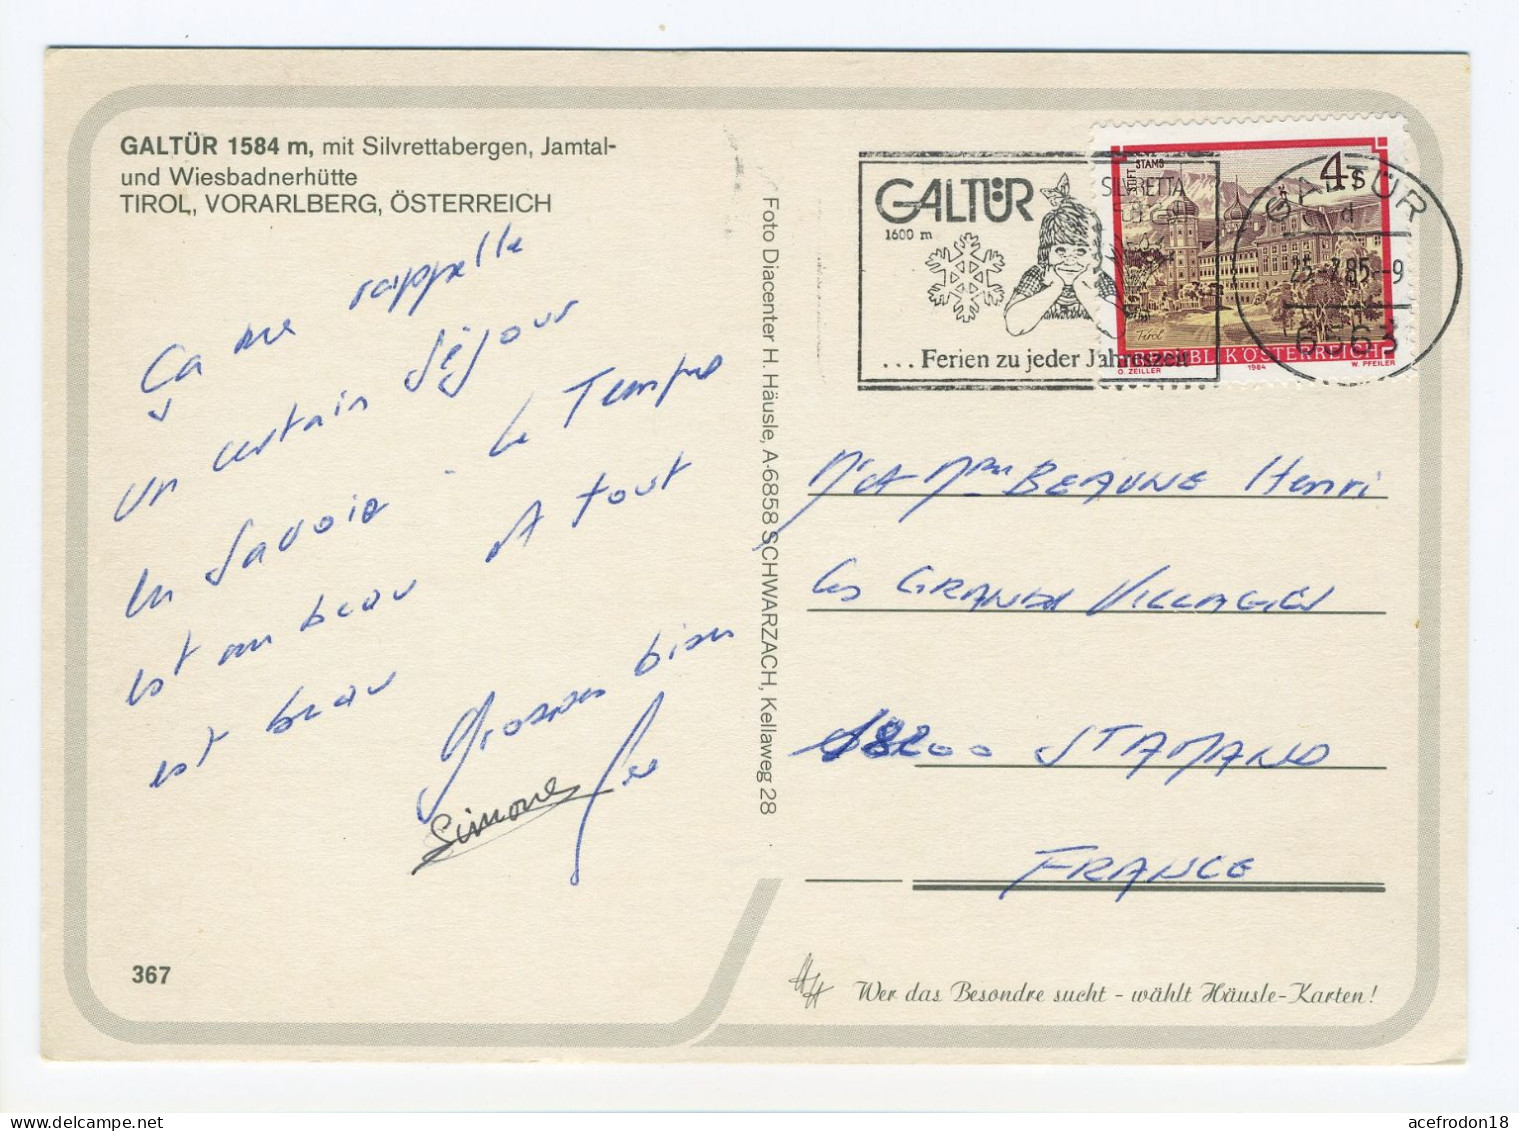 GALTÜR 1584 m, mit Silvrettabergen, Jamtal-
und Wiesbadnerhütte
TIROL, VORARLBERG, ÖSTERREICH
Ça me rappelle
un certain séjour
en Savoie - Le Temps
est au beau A tout
est beau
Grosses bises
Simone
367
Foto Diacenter H. Häusle, A-6858 SCHWARZACH, Kellaweg 28
GALTÜR
1600 m
SILVRETTA
... Ferien zu jeder Jahreszeit
STIFT STAMS
4 S
Tirol
REPUBLIK ÖSTERREICH
O. ZEILLER 1984 W. PFEILER
GALTÜR
d
25.-7.85.-9
6563
Mr et Mme BEAUNE Henri
Les GRANDS VILLAGES
18200 ST AMAND
FRANCE
HH Wer das Besondre sucht - wählt Häusle-Karten!
acefrodon18